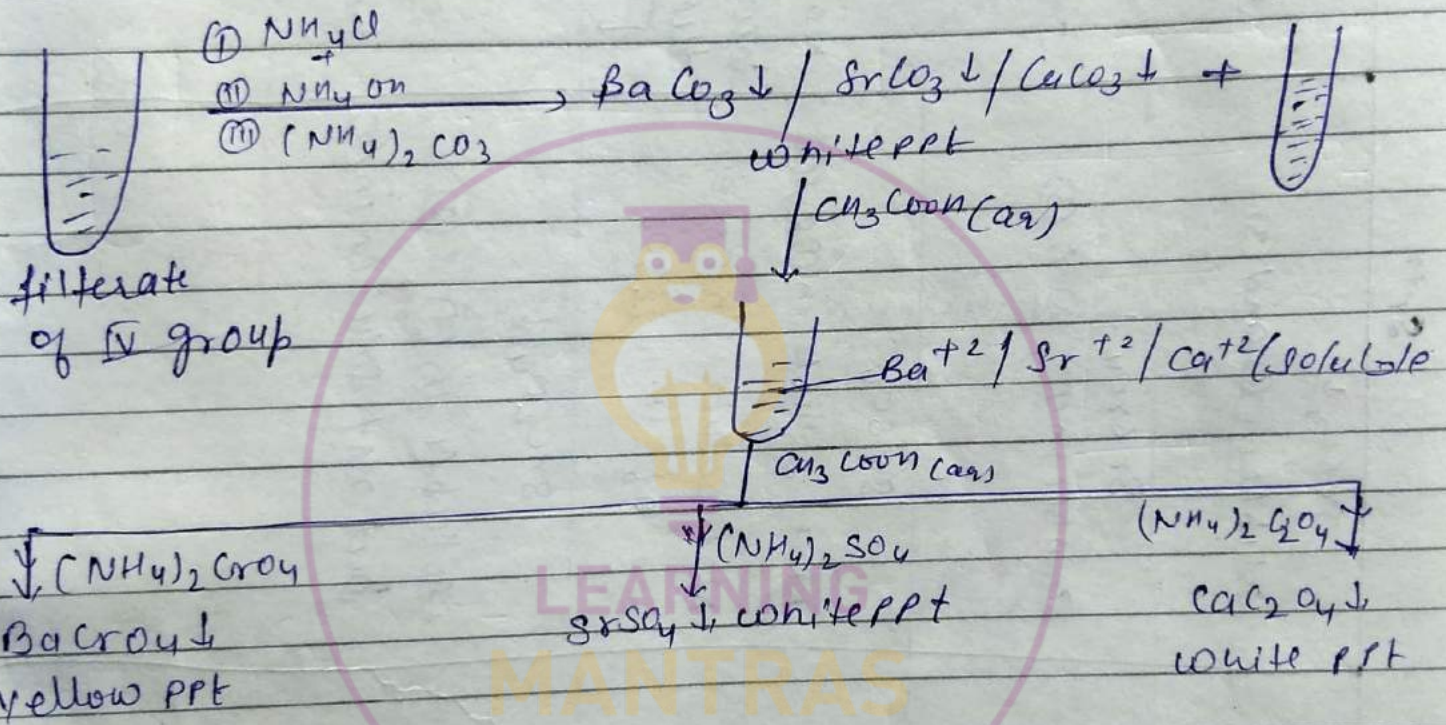 Ⓘ NH4Cl
+
Ⓘⓘ NH4OH
Ⓘⓘⓘ (NH4)2CO3
BaCO3↓ / SrCO3↓ / CaCO3↓ +
white ppt
CH3COOH (aq)
filterate
of IV group
Ba+2 / Sr+2 / Ca+2 (soluble
CH3COOH (aq)
(NH4)2CrO4
BaCrO4↓
yellow ppt
(NH4)2SO4
SrSO4↓, white ppt
(NH4)2C2O4
CaC2O4↓,
white ppt
LEARNING
MANTRAS